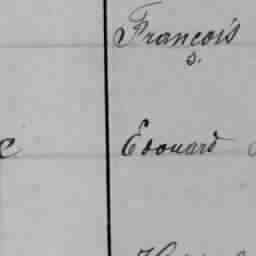 François
Edouard